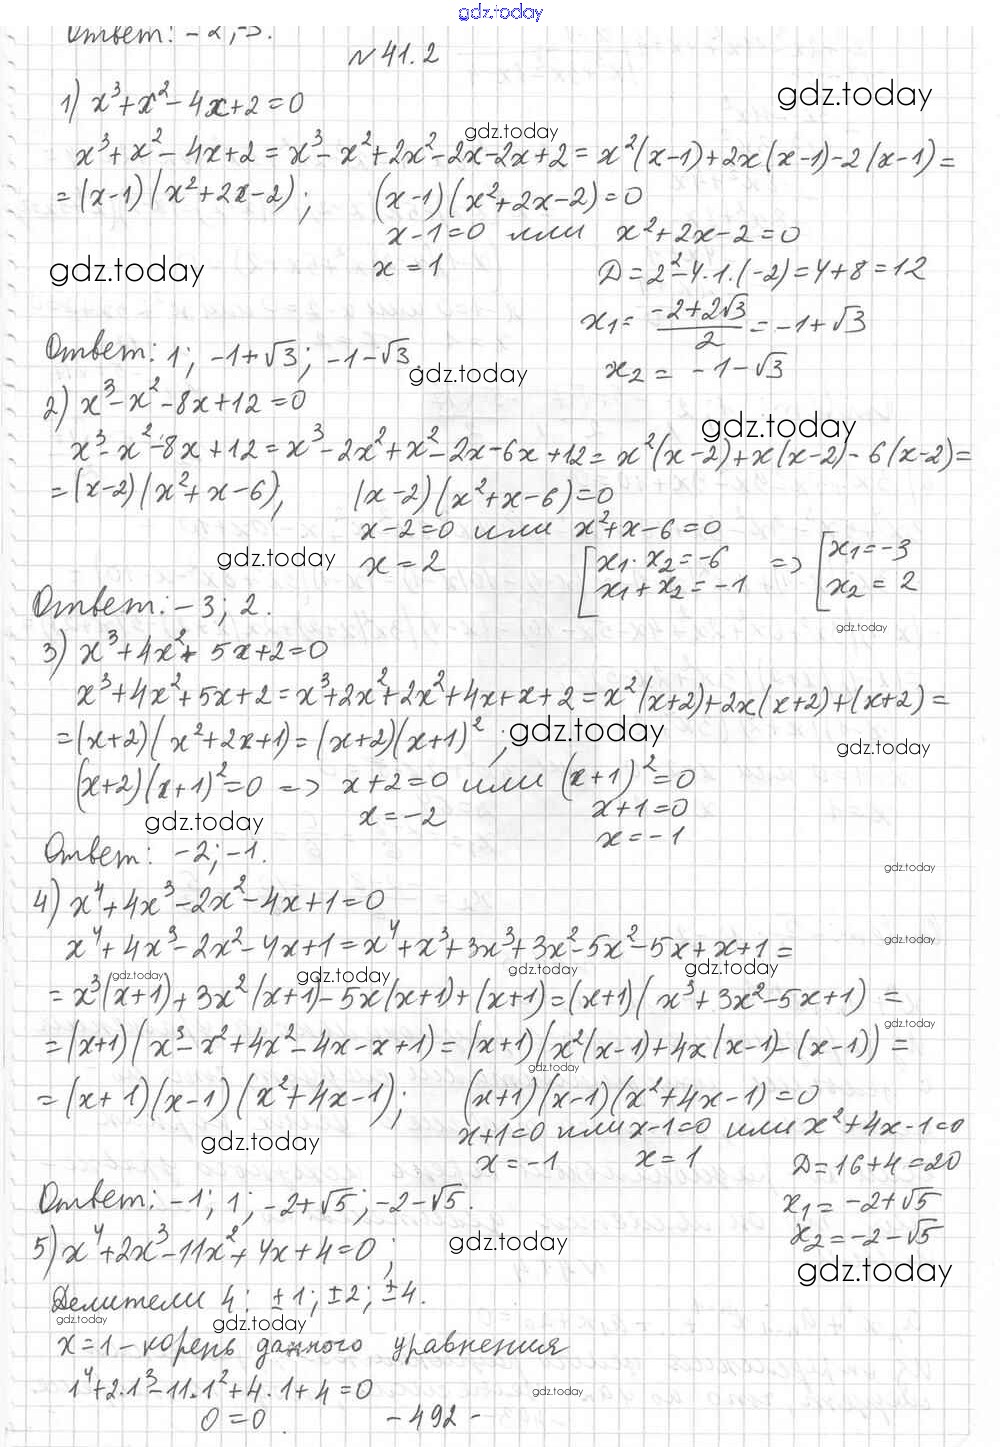 gdz.today
Ответ: -2; -3.
№41.2
1) x³+x²-4x+2=0
gdz.today
gdz.today
x³+x²-4x+2=x³-x²+2x²-2x-2x+2=x²(x-1)+2x(x-1)-2(x-1)=
=(x-1)(x²+2x-2); (x-1)(x²+2x-2)=0
x-1=0 или x²+2x-2=0
gdz.today
x=1 D=2²-4·1·(-2)=4+8=12
x₁=(-2+2√3)/2=-1+√3
Ответ: 1; -1+√3; -1-√3.
gdz.today
x₂=-1-√3
2) x³-x²-8x+12=0
gdz.today
x³-x²-8x+12=x³-2x²+x²-2x-6x+12=x²(x-2)+x(x-2)-6(x-2)=
=(x-2)(x²+x-6); (x-2)(x²+x-6)=0
x-2=0 или x²+x-6=0
gdz.today
x=2 [x₁·x₂=-6 => [x₁=-3
x₁+x₂=-1 x₂=2
Ответ: -3; 2.
gdz.today
3) x³+4x²+5x+2=0
x³+4x²+5x+2=x³+2x²+2x²+4x+x+2=x²(x+2)+2x(x+2)+(x+2)=
=(x+2)(x²+2x+1)=(x+2)(x+1)²;
gdz.today
gdz.today
(x+2)(x+1)²=0 => x+2=0 или (x+1)²=0
x=-2 x+1=0
gdz.today
x=-1
Ответ: -2; -1.
gdz.today
4) x⁴+4x³-2x²-4x+1=0
x⁴+4x³-2x²-4x+1=x⁴+x³+3x³+3x²-5x²-5x+x+1=
gdz.today
gdz.today
gdz.today
gdz.today
gdz.today
=x³(x+1)+3x²(x+1)-5x(x+1)+(x+1)=(x+1)(x³+3x²-5x+1)=
gdz.today
=(x+1)(x³-x²+4x²-4x-x+1)=(x+1)(x²(x-1)+4x(x-1)-(x-1))=
gdz.today
=(x+1)(x-1)(x²+4x-1); (x+1)(x-1)(x²+4x-1)=0
x+1=0 или x-1=0 или x²+4x-1=0
gdz.today
x=-1 x=1 D=16+4=20
Ответ: -1; 1; -2+√5; -2-√5. x₁=-2+√5
x₂=-2-√5
5) x⁴+2x³-11x²+4x+4=0;
gdz.today
gdz.today
Делители 4: ±1; ±2; ±4.
gdz.today
gdz.today
x=1 - корень данного уравнения
1⁴+2·1³-11·1²+4·1+4=0
gdz.today
0=0.
- 492 -